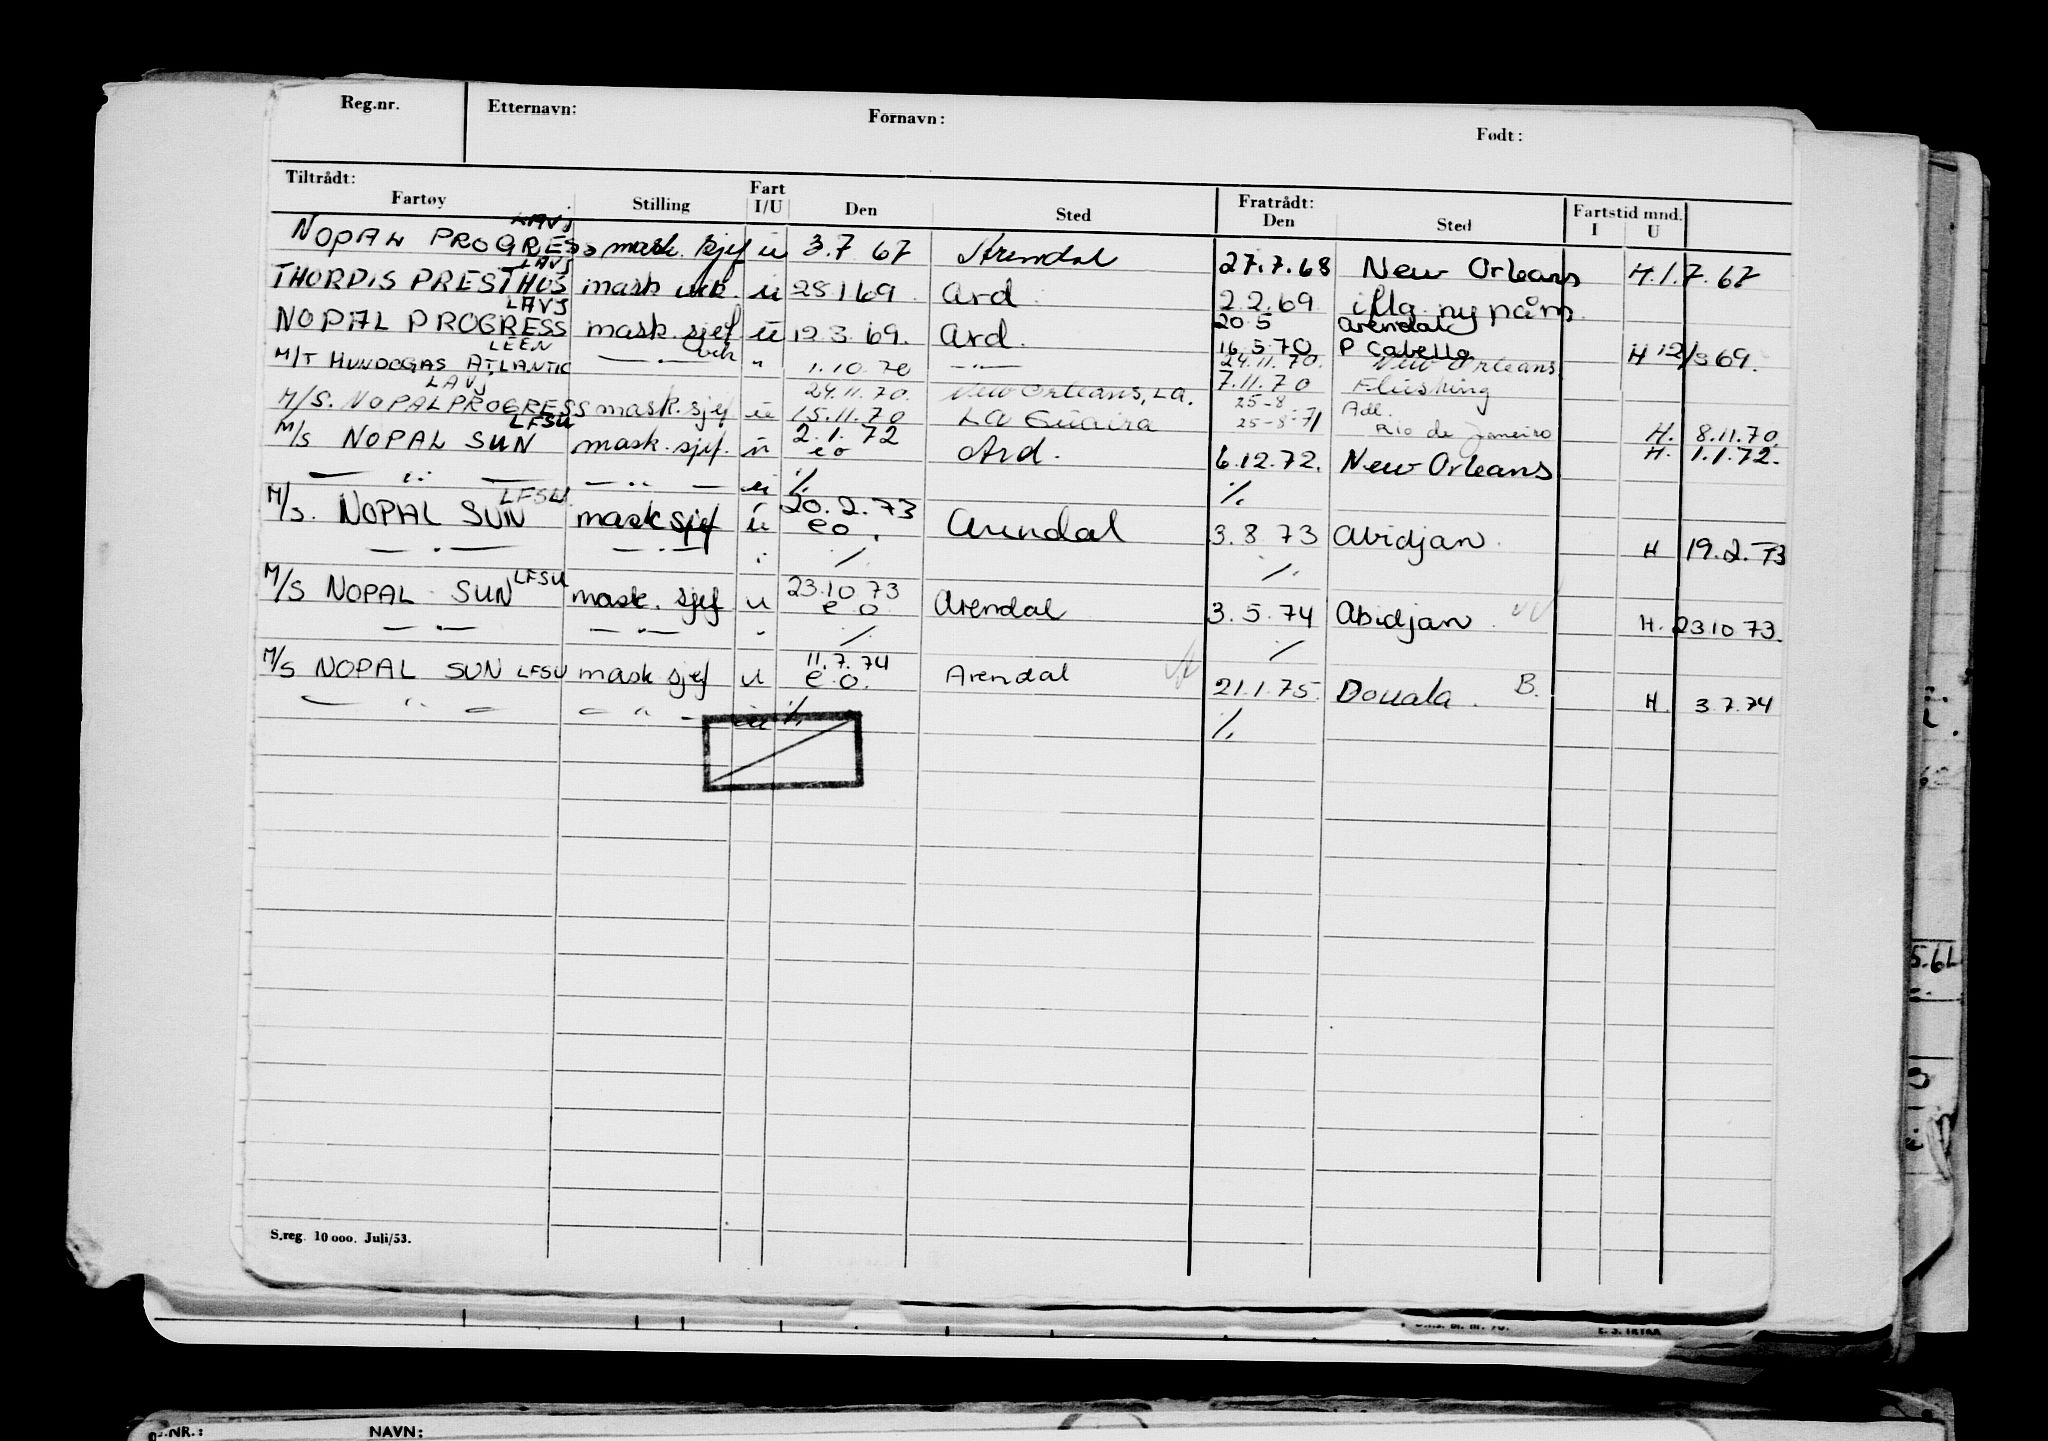 Reg.nr. Etternavn: Fornavn: Født:
Tiltrådt: Fart Fratrådt: Fartstid mnd.
Fartøy Stilling I/U Den Sted Den Sted I U
LAVJ
NOPAL PROGRESS mask. sjef u 3.7 67 Arendal 27.7.68 New Orleans H.1.7.67
LAVJ
THORDIS PRESTHUS mask vik. u 28 1 69 Ard 2.2.69 iflg. ny påm.
LAVJ 20 5 Arendal
NOPAL PROGRESS mask. sjef u 12.3.69. Ard. 16.5.70 P Cabello H 12/3 69.
LEEN vik 24.11.70. New Orleans
M/T HUNDOGAS ATLANTIC — . — " 1.10.70 — " — 7.11.70 Flushing
LAVJ 24.11.70. New Orleans, LA. 25-8 Adl.
M/S. NOPAL PROGRESS mask. sjef u 15.11.70 La Guaira 25-8-71 Rio de Janeiro H. 8.11.70.
LFSU 2.1.72
M/S NOPAL SUN mask. sjef. u eo Ard. 6.12.72. New Orleans H. 1.1.72.
— " — — " — u ./. ./.
LFSU 20.2.73
M/S. NOPAL SUN mask sjef u eo. Arendal 3.8 73 Abidjan. H 19.2.73
— . — — . — ./. ./.
LFSU 23.10 73
M/S NOPAL SUN mask. sjef u e o Arendal 3.5.74 Abidjan. H. 23 10 73.
— . — — . — " ./. ./.
11.7.74
M/S NOPAL SUN LFSU mask sjef u e.o. Arendal 21.1.75. Douala. B. H. 3.7.74
— " — — " — u ./. ./.
S.reg. 10 000. Juli/53.
NR.: NAVN: